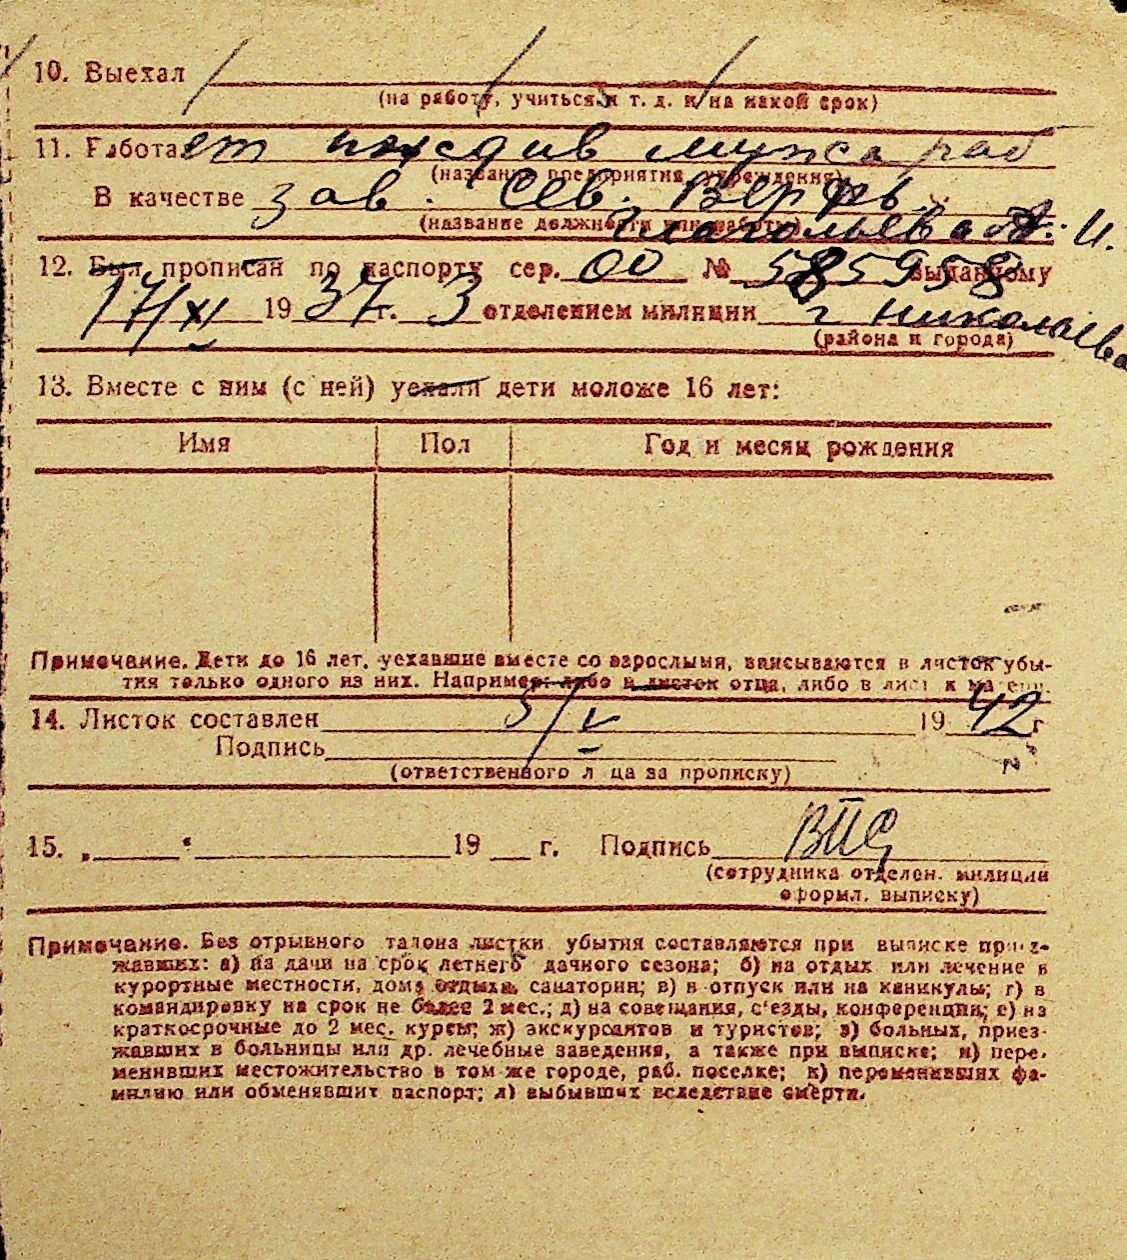 10. Выехал
(на работу, учиться и т. д. и на какой срок)
11. Работает иждив мужа раб
(название предприятия, учреждения)
В качестве зав. Сев. Верфь.
(название должности или работы)
Глагольева А. И.
12. Был прописан по паспорту сер. 00 № 585958 выданному
17/XI 1937 г. 3 отделением милиции г Николаева
(района и города)
13. Вместе с ним (с ней) уехали дети моложе 16 лет:
Имя Пол Год и месяц рождения
Примечание. Дети до 16 лет, уехавшие вместе со взрослыми, вписываются в листок убы-
тия только одного из них. Например: либо в листок отца, либо в листок матери.
14. Листок составлен 5/V 1942 г
Подпись
(ответственного лица за прописку)
15. „ “ 19 г. Подпись ВПС
(сотрудника отделен. милиции
оформл. выписку)
Примечание. Без отрывного талона листки убытия составляются при выписке приез-
жавших: а) на дачи на срок летнего дачного сезона; б) на отдых или лечение в
курортные местности, дома отдыха, санатории; в) в отпуск или на каникулы; г) в
командировку на срок не более 2 мес.; д) на совещания, с'езды, конференции; е) на
краткосрочные до 2 мес. курсы; ж) экскурсантов и туристов; з) больных, приез-
жавших в больницы или др. лечебные заведения, а также при выписке; и) пере-
менивших местожительство в том же городе, раб. поселке; к) переменивших фа-
милию или обменявших паспорт; л) выбывших вследствие смерти.